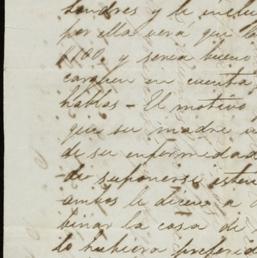 Londres y le inclu
por ella verá que la
1100. y seria bueno
carguen en cuenta
hablas - El motivo
que su madre
de su enfermedad
de suponerse
ambos le dieron a
binar la casa de
lo hubiera preferido